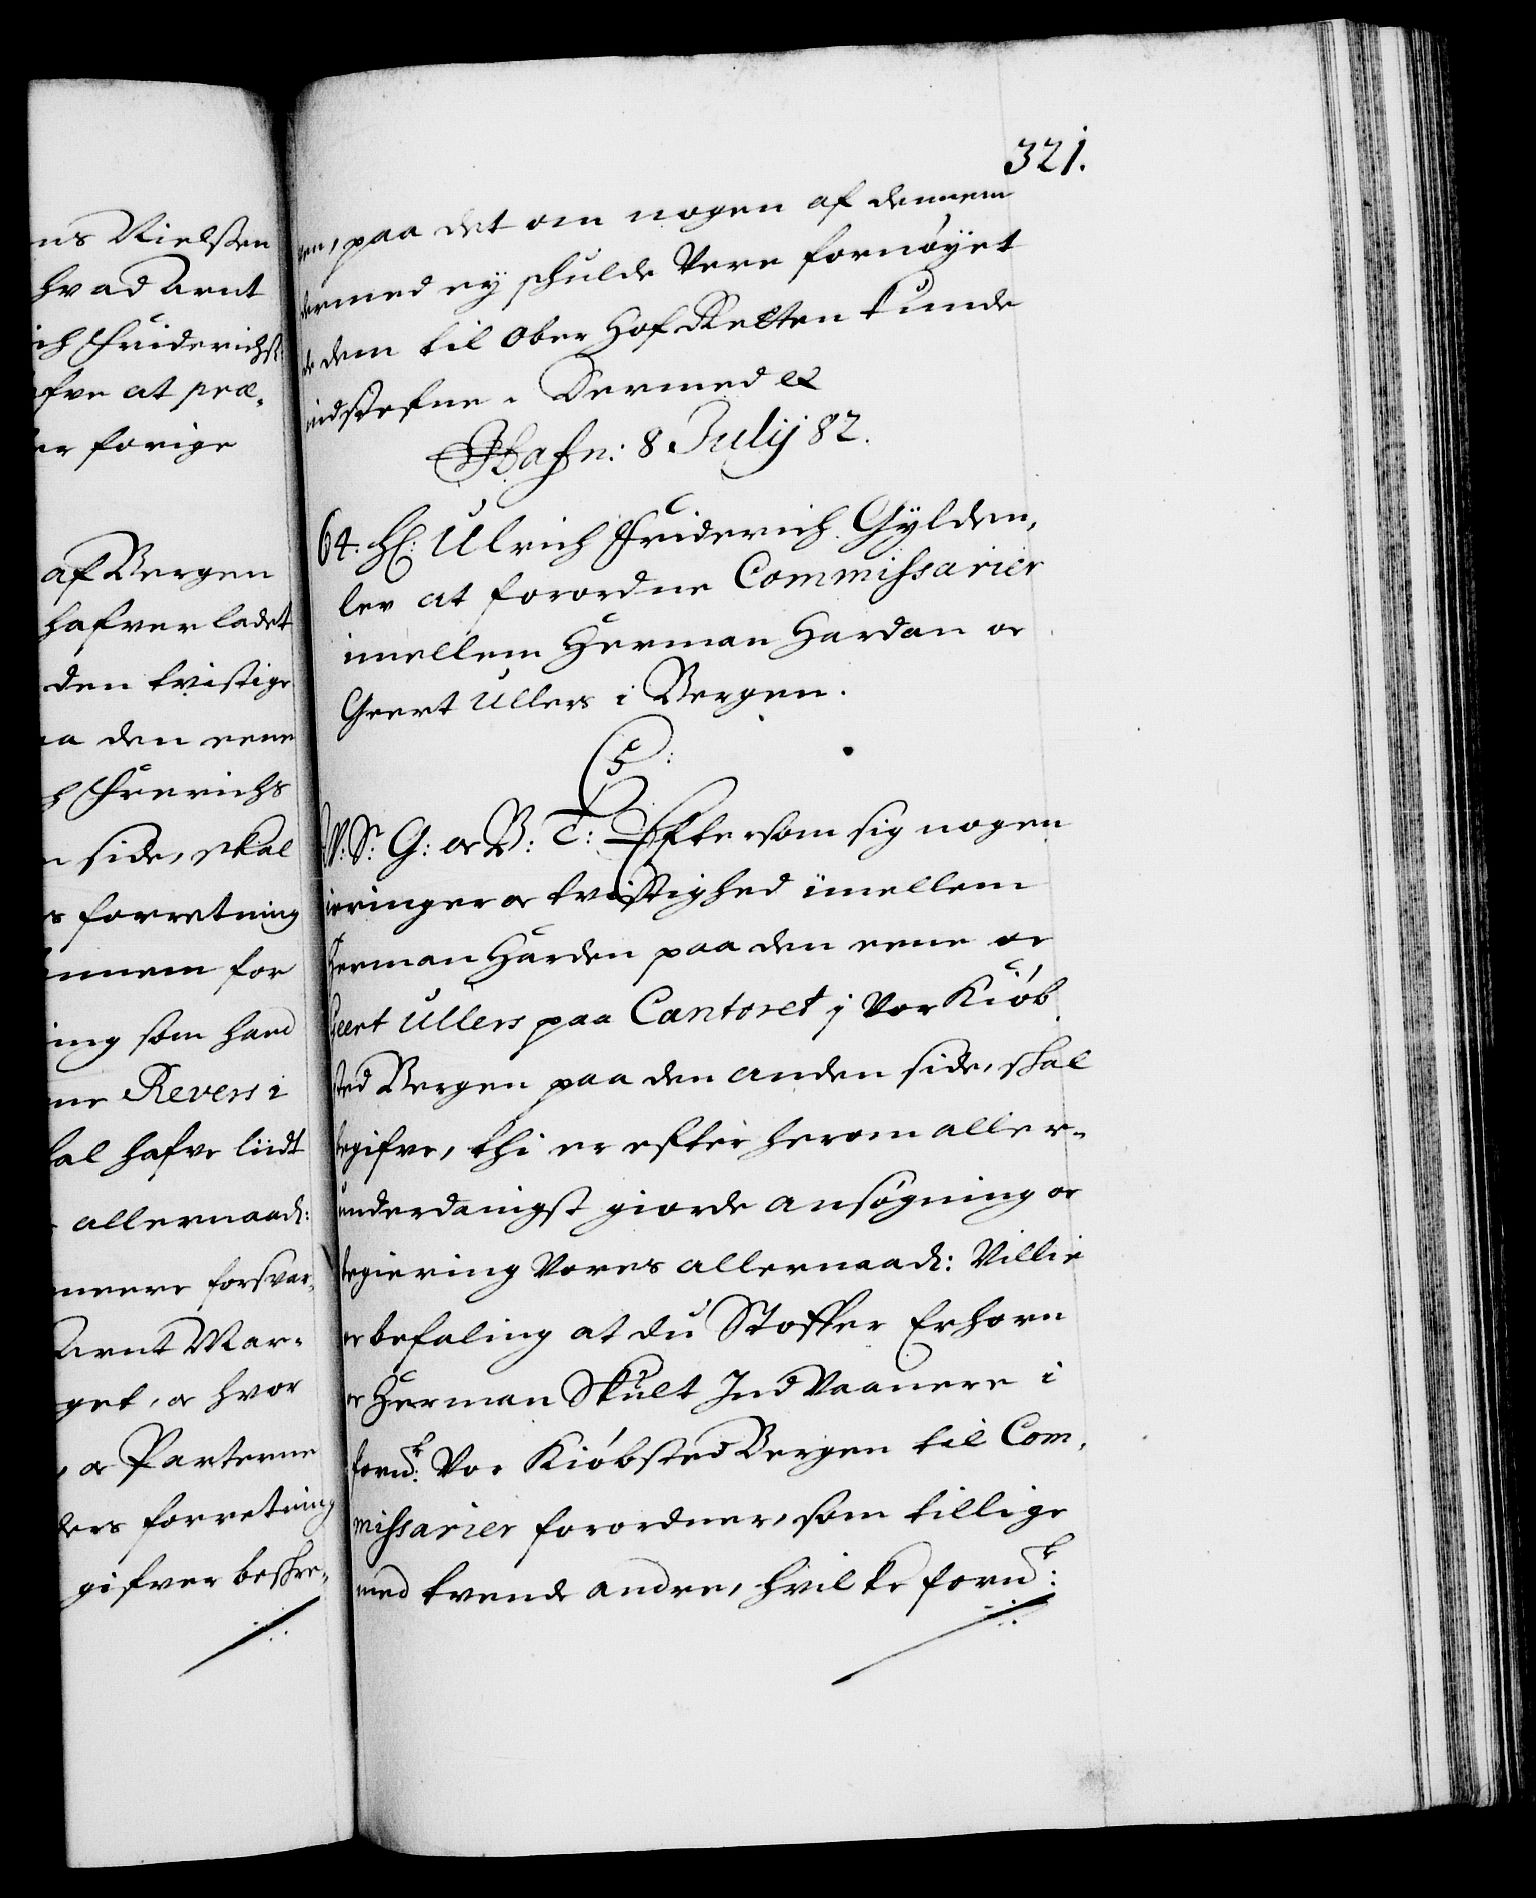 ns Nielssen
hvad Arnt
ich Friderichs:
afve at præ-
er forige
af Bergen
hafver ladet
den tvistige
aa den eene
h Frerichs
n side, skal
s forretning
ennem for
ing som hand
ne Revers i
kal hafve liidt
allernaad:
meere forsvar-
Arnt Mar-
get, oc hvor
, oc Parterne
ders forretning
gifver beskre-
321.
ven, paa det om nogen af dennem
dermed ey schulde Vere fornøyet
de dem til Ober Hof Retten kunde
indstefne. Dermed etc
Hafn: 8 Julij 82.
64. Hr: Ulrich Friderich Gylden-
lev at forordne Commissarier
imellem Herman Hardan oc
Geert Ullers i Bergen.
C5:
V: S: G: oc B: T: Eftersom sig nogen
irringer oc tvistighed imellem
Herman Harden paa den eene oc
Geert Ullers paa Cantoret j Vor Kiøb
sted Bergen paa den anden side, skal
begifve, thi er efter herom aller-
underdanigst giorde ansøgning oc
begiering Vores allernaad: Villie
oc befaling at du Stoffer Erhorn
oc Herman Skult Indvaanere i
fornd: Vor Kiøbsted Bergen til Com-
missarier forordner, som tillige
med tvende andre, hvilke fornd: